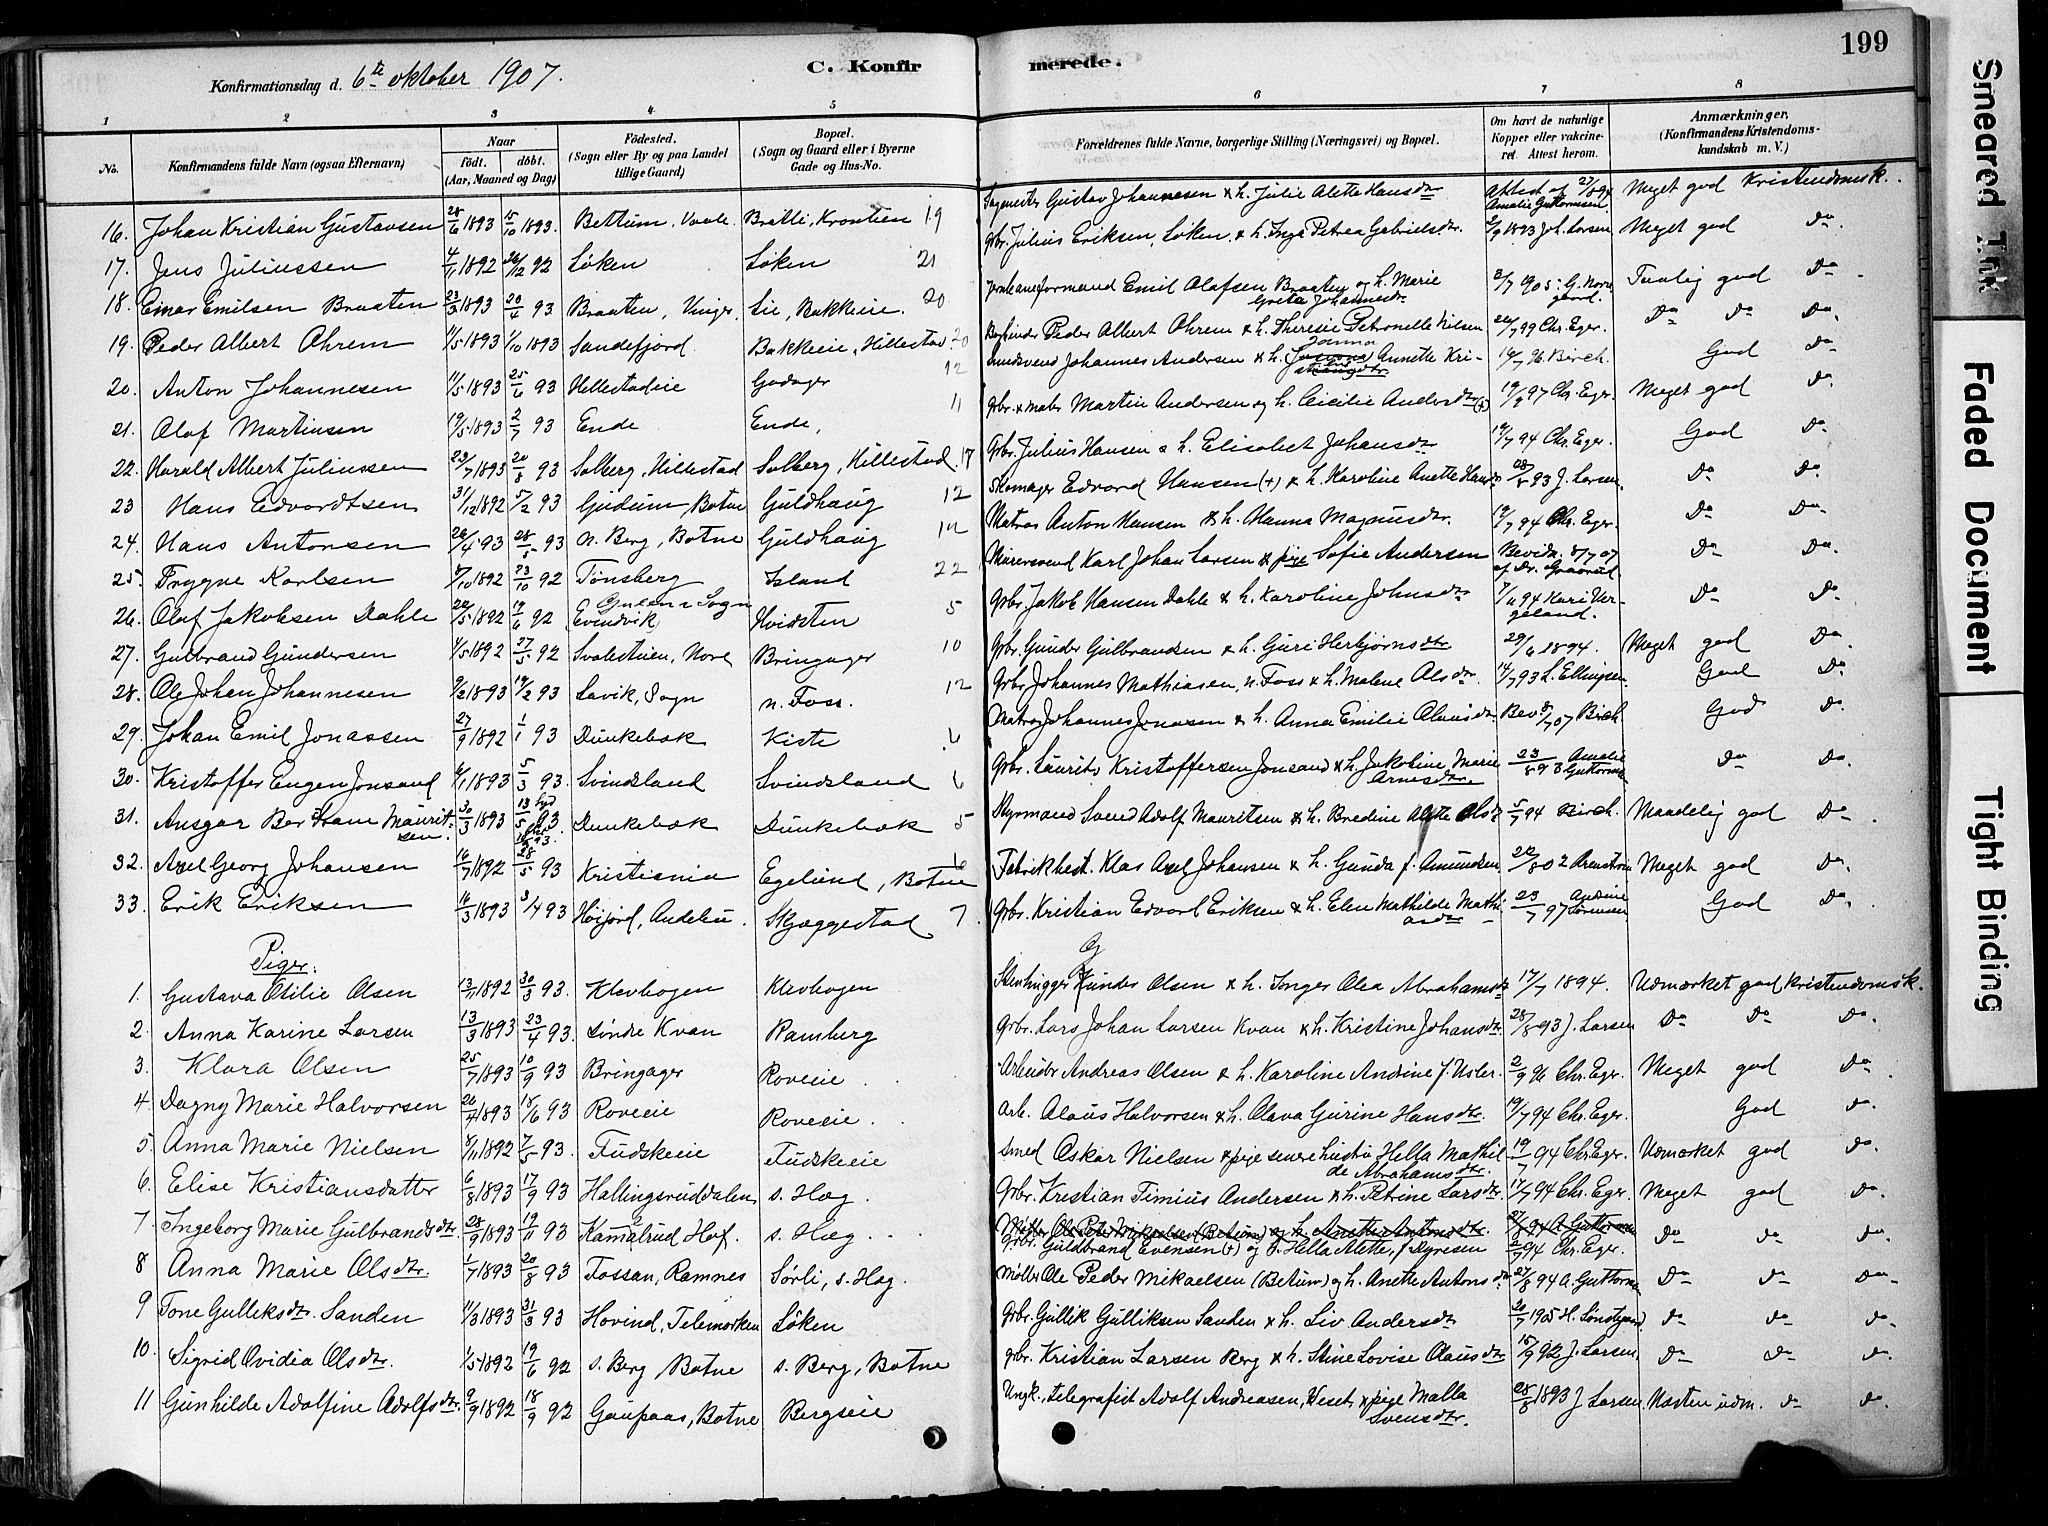 199
Konfirmationsdag d. 6te oktober 1907.
C. Konfirmerede.
1 2 3 4 5 6 7 8
No.
Konfirmandens fulde Navn (ogsaa Efternavn)
Naar
födt. döbt.
(Aar, Maaned og Dag)
Födested.
(Sogn eller By og paa Landet tillige Gaard)
Bopæl.
(Sogn og Gaard eller i Byerne Gade og Hus-No.
Forældrenes fulde Navne, borgerlige Stilling (Næringsvei) og Bopæl.
Om havt de naturlige Kopper eller vakcineret. Attest herom.
Anmærkninger,
(Konfirmandens Kristendomskundskab m. V.)
16. Johan Kristian Gustavsen 28/6 1893 15/10 1893. Bettum, Vaale Bratli, Krontien 19 Gustav Johannesen & h. Julie Alette Hansdtr Attest af 27/8 94 Amalie Guttormsen. Meget god Kristendomsk.
17. Jens Juliussen 4/11 1892 26/12 92 Löken Löken 21 Gbr. Julius Eriksen, Löken, & h. Inga Petrea Gabrielsdtr. 2/9 1893 Joh. Larsen Meget god Do
18. Einar Emilsen Braaten 23/3 1893 20/4 93 Braaten, Vinger. Lie, Bakkeie. 20 Emil Olafsen Braaten og h. Marie Grete Johannesdtr 3/7 1905 G. Nore gaard. Temlig god Do
19. Peder Albert Ohrem 11/5 1893 1/10 1893 Sandefjord Bakkeie, Hillestad 20 Peder Albert Ohrem & h. Theresie Petronelle Nilsen 26/7 99 Chr. Eger. Do Do Do
20. Anton Johannesen 11/5 1893 25/6 93 Hillestadeie Godager 12 Johannes Andersen & h. Janna Annette Kri- 19/7 96 Birch. God Do
21. Olaf Martinsen 19/5 1893 2/7 93 Ende Ende, 11 Gbr. & mabr Martin Andersen og h. Cicilie Andersdtr (+) 19/9 97 Chr. Eger. Meget god Do
22. Harald Albert Juliussen 23/7 1893 20/8 93 Solberg, Hillestad Solberg, Hillestad 17 Gbr. Julius Hansen & h. Elisabet Johansdtr 19/7 94 Chr. Eger. God Do
23 Hans Edvardtsen 31/12 1892 5/2 93 Gudum, Botne Guldhaug 12 Skomager Edvard Hansen (+) & h. Karoline Anette Hansd. 28/8 93 J. Larsen. Do Do
24. Hans Antonsen 26/4 93 28/5 93 n. Berg, Botne Guldhaug 12 Matros Anton Hansen & h. Hanna Magnusdtr. 19/7 94 Chr. Eger. Do Do
25. Trygve Karlsen 8/10 1892 23/10 92 Tönsberg Island 22 Murersvend Karl Johan Larsen & pige Sofie Andersen Bevidn. 8/7 07 af Dr. Graarud Do Do
26. Olaf Jakobsen Dahle 22/5 1892 19/6 92 Evendvik Gulens Sogn Hvidsten 5 Gbr. Jakob Hansen Dahle & h. Karoline Johnsdtr 7/6 94 Kari Vergeland. Do Do
27. Gulbrand Gundersen 4/5 1892 27/5 92 Svalestuen, Nore Bringager 10 Gbr. Gunder Gulbrandsen & h. Guri Herbjörnsdtr 29/6 1894. Meget god Do
28. Ole Johan Johannesen 9/2 1893 19/2 93 Lavik, Sogn n. Foss. 12 Gbr. Johannes Mathiasen, n. Foss & h. Malene Olsdtr 14/7 93 L. Ellingsen. God Do
29. Johan Emil Jonassen 27/9 1892 1/1 93 Dunkebæk Kiste 6 Matros Johannes Jonasen & h. Anna Emilie Olausdtr Bev 8/7 07 Birch. God Do
30. Kristoffer Eugen Jonsand 6/1 1893 5/3 93 Svindsland Svindsland 6 Gbr. Laurits Kristoffersen Jonsand & h. Jakobine Marie Arnesdtr. 23/8 93 Amalie Guttorms Do Do
31. Ansgar Bertram Mauritsen. 30/3 1893 13/5 93 Dunkebæk Dunkebæk 5 Styrmand Svend Adolf Mauritsen & h. Bredine Alette Olsd. 5/7 94 Birch. Maadelig god Do
32. Axel Georg Johansen 16/7 1892 28/5 93 Kristiania Egelund, Botne 16 Fabrikbest. Klas Axel Johansen & h. Gunda f. Amundsen 22/8 02 Meget god Do
33. Erik Eriksen 16/3 1893 3/4 93 Höijord, Andebu. Skjæggestad 7. Gbr. Kristian Edvard Eriksen & h. Elen Mathilde Mathiasdtr 23/7 97 Andrine Sörensen God Do
Piger.
1. Gustava Otilie Olsen 13/11 1892 30/3 93. Klevhogen Klevhogen Stenhugger Gunder Olsen & h. Inger Olea Abrahamsdtr 17/7 1894. Udmærket god Kristendomsk.
2. Anna Karine Larsen 13/3 1893 23/4 93. Söndre Kvan Ramberg Gbr. Lars Johan Larsen Kvan & h. Kristine Johansdtr. 28/8 93 J. Larsen Do Do Do
3. Klara Olsen 25/7 1893 10/9 93 Bringager Roveeie Arbeider Andreas Olsen & h. Karoline Andrine f. Usler. 2/9 96 Chr. Eger. Meget god Do
4 Dagny Marie Halvorsen 26/4 1893 18/6 93 Roveeie Roveeie Arb. Olaus Halvorsen & h. Olava Gurine Hansdtr. 19/7 94 Chr. Eger. God Do
5. Anna Marie Nielsen 8/11 1892 7/5 93. Fudskeeie Fudskeeie Smed Oskar Nielsen & pige senere hustru Hella Mathilde Abrahamsdtr. 19/7 94 Chr. Eger. Udmærket god Do
6. Elise Kristiansdatter 6/8 1893 17/9 93 Hallingsruddalen s. Hæg. Gbr. Kristian Timius Andersen & h. Petrine Larsdtr 17/7 94 Chr. Eger. Meget god Do
7. Ingeborg Marie Gulbrandsdtr. 28/9 1893 19/11 93 Kamalrud Hof. s. Hæg. Gbr. Guldbrand Evensen (+) og h. Hella Alette, f. Dyresen 2/7 94 Chr. Eger. Do Do Do
8 Anna Marie Olsdtr. 1/7 1893 20/8 93 Fossan, Ramnes Sörli, s. Hæg. Möller Ole Peder Mikaelsen (Betum) og h. Anette Antonsdtr 27/8 94 A. Guttorms Do Do Do
9 Tone Gulliksdtr. Sanden 11/3 1893 31/3 93 Hovind, Telemarken Löken Gbr. Gullik Gulliksen Sanden & h. Liv Andersdtr 20/7 1905 H. Do Do Do
10. Sigrid Ovidia Olsdtr. 1/5 1892 19/6 92 s. Berg Botne s. Berg, Botne gbr. Kristian Larsen Berg & h. Stine Lovise Olausdtr 15/9 92 J. Larsen. Do Do Do
11 Gunhilde Adolfine Adolfsdtr. 9/9 1892 18/9 92 Gaupaas, Botne Bergseie Ungk., telegrafist Adolf Andreasen, Veset, & pige Malla Svensdtr. 28/8 1893 J Larsen Næsten udm. Do Do
Smeared Ink
Faded Document
Tight Binding